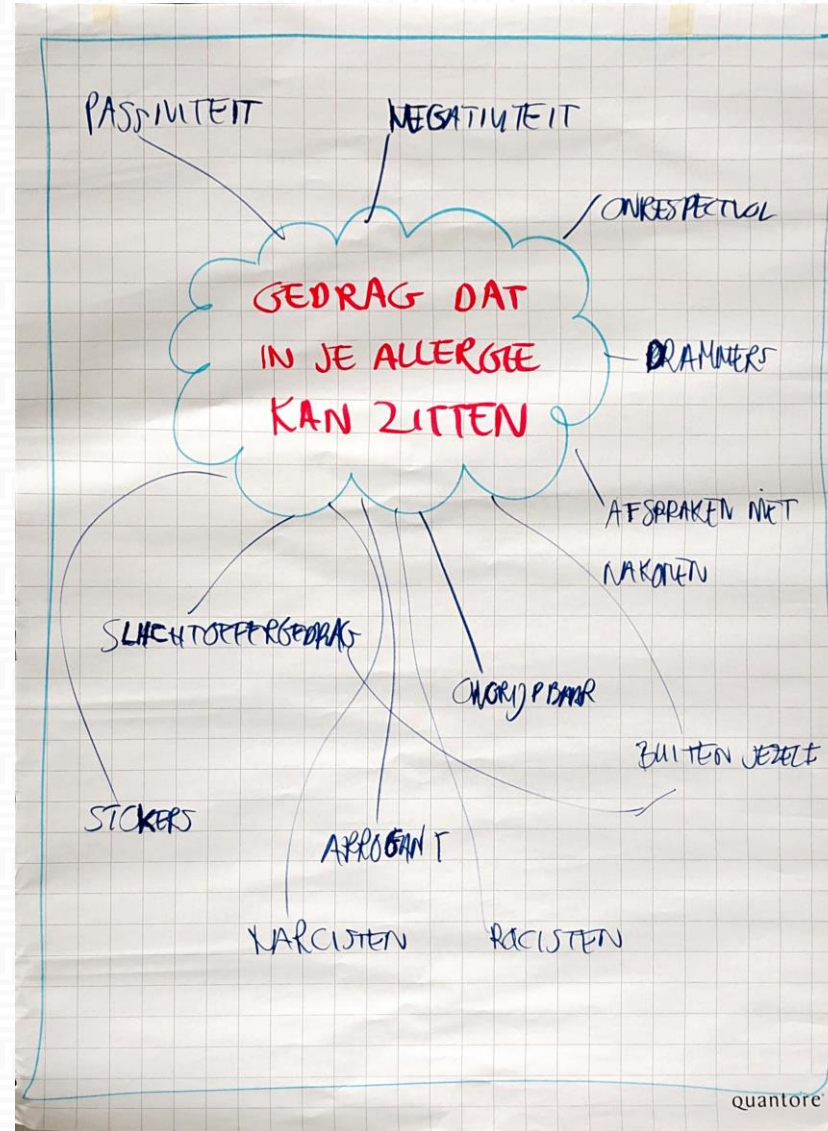 PASSIVITEIT
NEGATIVITEIT
ONRESPECTVOL
GEDRAG DAT
IN JE ALLERGIE
KAN ZITTEN
DRAMMERS
AFSPRAKEN NIET
NAKOMEN
SLACHTOFFERGEDRAG
ONGRIJPBAAR
BUITEN JEZELF
STOKERS
ARROGANT
NARCISTEN
RACISTEN
quantore